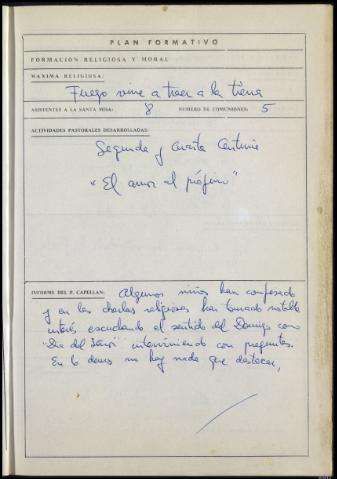 PLAN FORMATIVO
FORMACION RELIGIOSA Y MORAL
MAXIMA RELIGIOSA:
Fuego vine a traer a la tierra
ASISTENTES A LA SANTA MISA: 8 NUMERO DE COMUNIONES: 5
ACTIVIDADES PASTORALES DESARROLLADAS:
Segunda y Cuarta Centuria
"El amor al prójimo"
INFORME DEL P. CAPELLAN: Algunos niños han confesado
y en las charlas religiosas han tomado notable
interés escuchando el sentido del Domingo como
"Dia del Señor" interviniendo con preguntas.
En lo demas no hay nada que destacar,